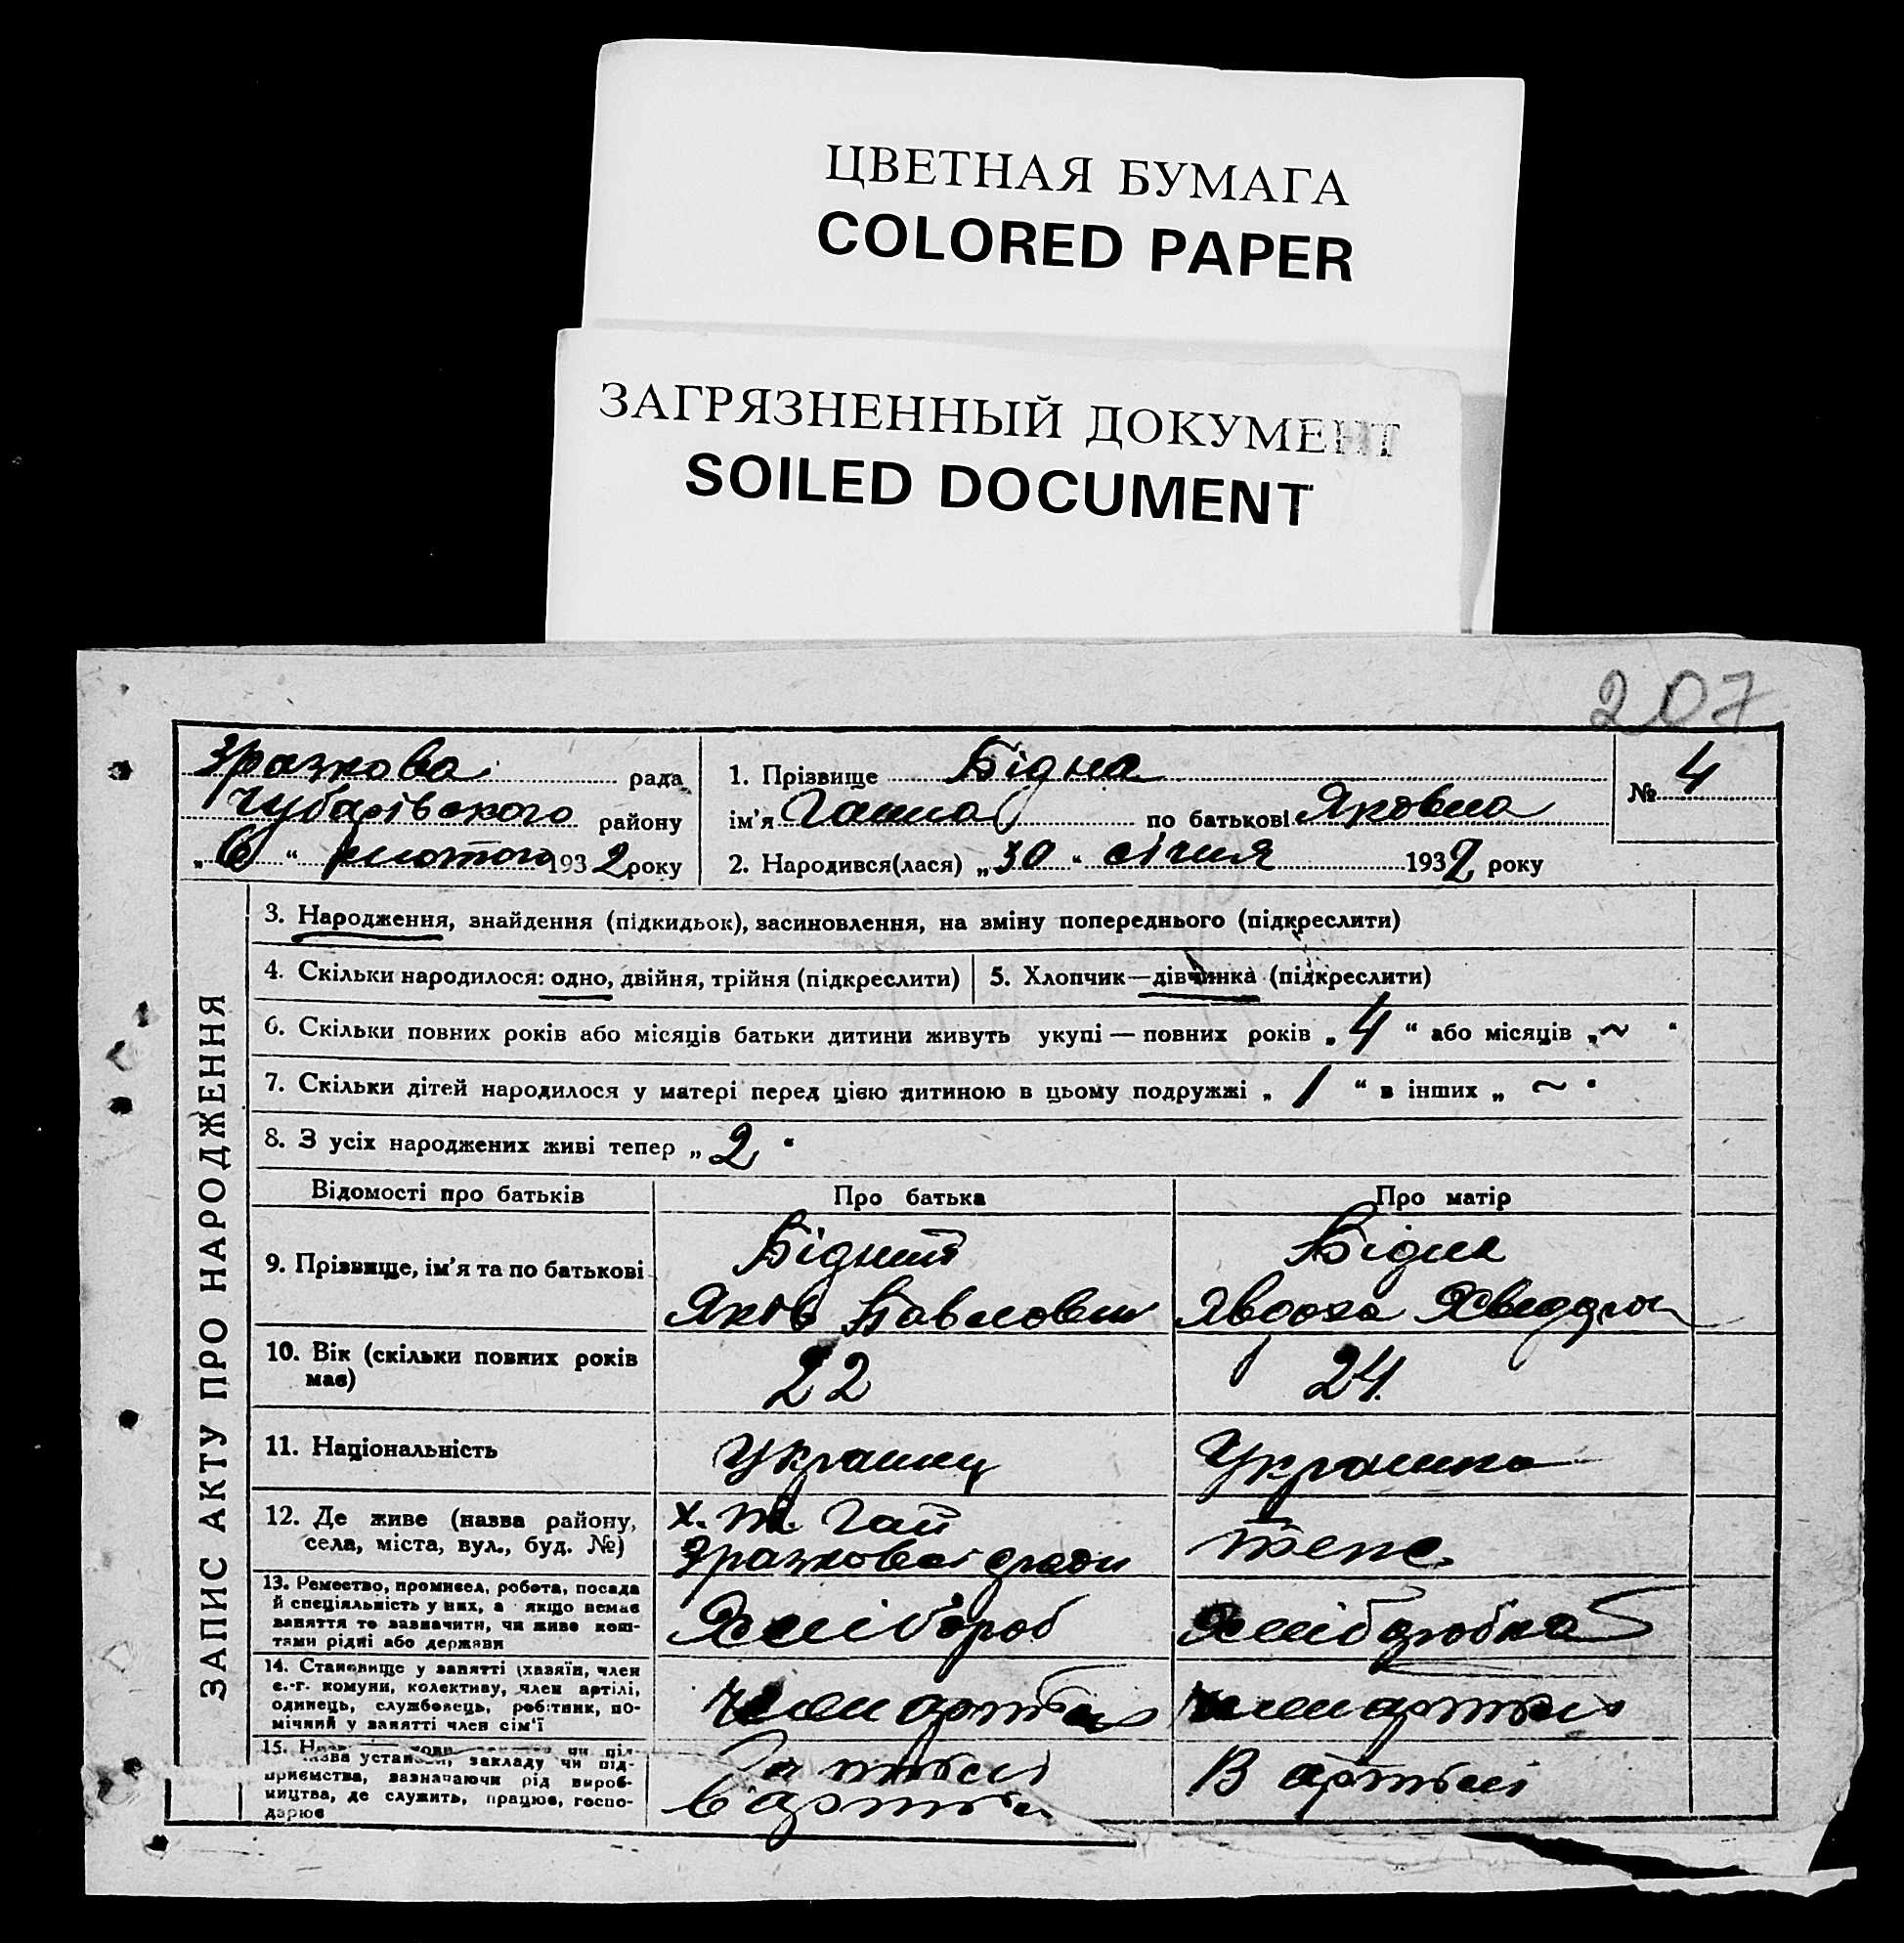 ЦВЕТНАЯ БУМАГА
COLORED PAPER
ЗАГРЯЗНЕННЫЙ ДОКУМЕНТ
SOILED DOCUMENT
207
Зразкова рада
Чубарівського району
„6“ лютого 1932 року
1. Прізвище Бідна
ім'я Ганна по батькові Яковна
2. Народився(лася) „30“ січня 1932 року
№ 4
ЗАПИС АКТУ ПРО НАРОДЖЕННЯ
3. Народження, знайдення (підкидьок), засиновлення, на зміну попереднього (підкреслити)
4. Скільки народилося: одно, двійня, трійня (підкреслити)
5. Хлопчик—дівчинка (підкреслити)
6. Скільки повних років або місяців батьки дитини живуть укупі — повних років „4“ або місяців „~“
7. Скільки дітей народилося у матері перед цією дитиною в цьому подружжі „1“ в інших „~“
8. З усіх народжених живі тепер „2“
Відомості про батьків
Про батька
Про матір
9. Прізвище, ім'я та по батькові
Бідний
Яків Павлович
Бідна
Явдоха
10. Вік (скільки повних років
має)
22
24
11. Національність
Українец
Українка
12. Де живе (назва району,
села, міста, вул., буд. №)
х. Гай
Зразковой ради
теже
13. Ремество, промисел, робота, посада
й спеціяльність у них, а якщо немає
заняття то зазначити, чи живе кош-
тами рідні або держави
Хлібороб
Хліборобка
14. Становище у занятті (хазяїн, член
с.-г. комуни, колективу, член артілі,
одинець, службовець, робітник, по-
мічний у занятті член сім'ї
член артыли
член артыли
15.
назва установи, закладу чи під-
приємства, зазначаючи рід вироб-
ництва, де служить, працює, госпо-
дарює
в артыли
В артылі